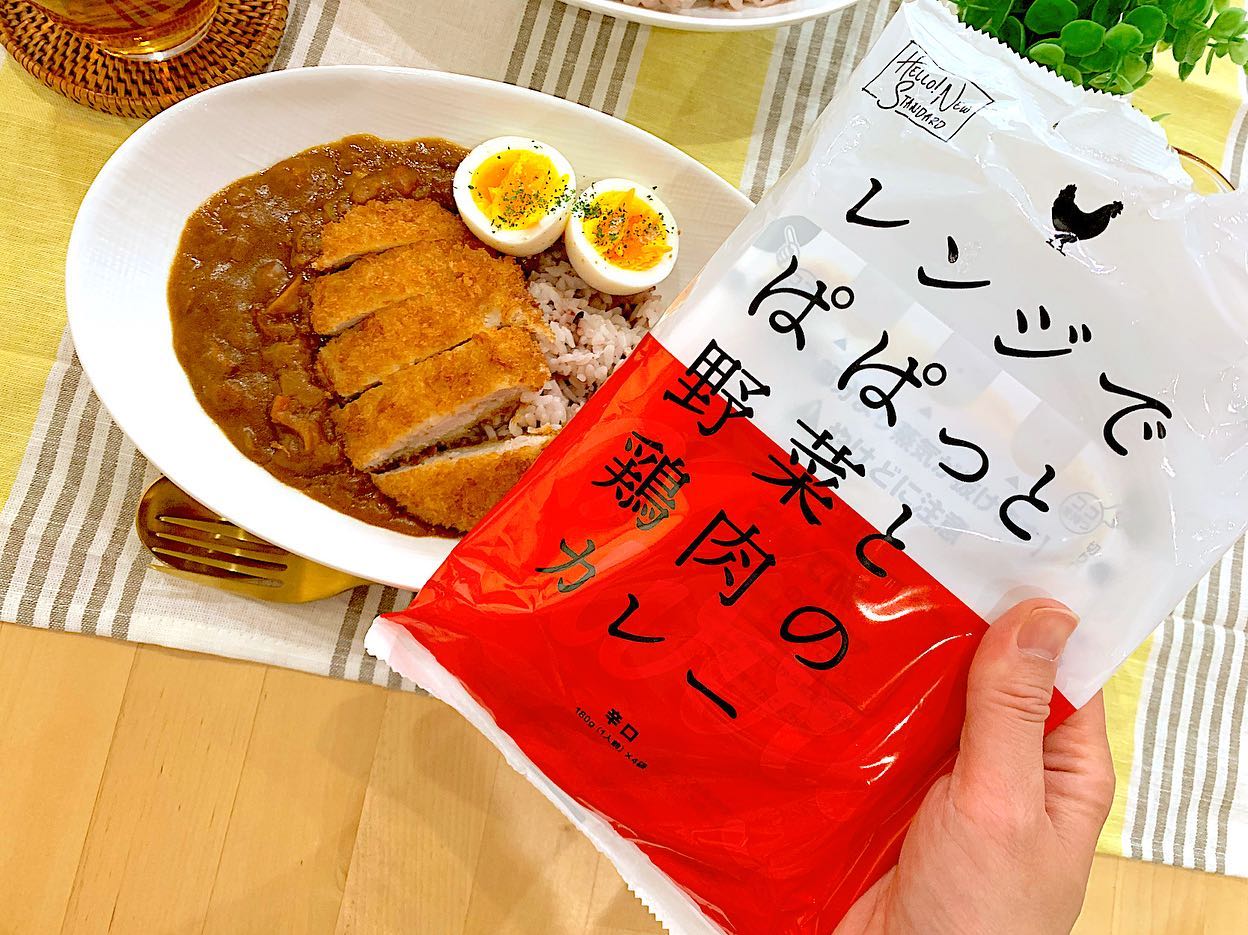 HELLO! NEW
STANDARD
レンジで
ぱぱっと
野菜と
鶏肉の
カレー
辛口
180g (1人前) ×4袋